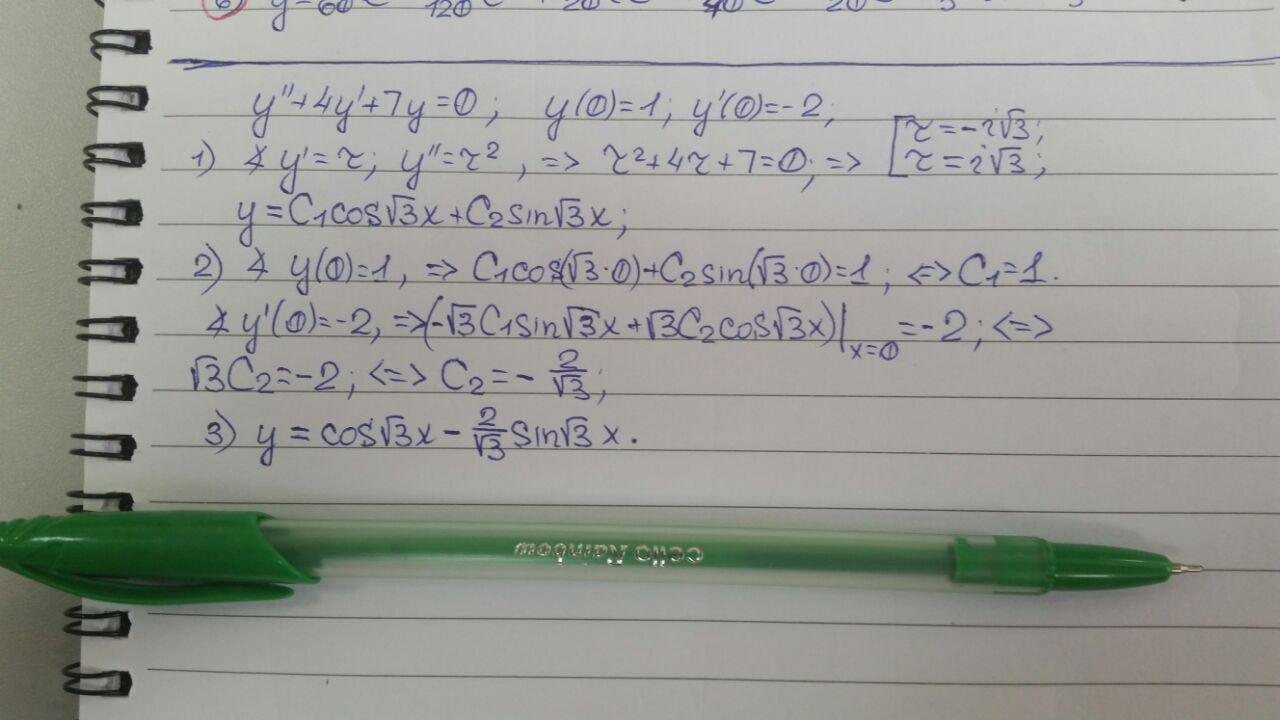 y''+4y'+7y=0; y(0)=1; y'(0)=-2;
1) ∡ y'=r; y''=r², => r²+4r+7=0; => [r=-i√3; r=i√3;
y=C₁cos√3x+C₂sin√3x;
2) ∡ y(0)=1, => C₁cos(√3·0)+C₂sin(√3·0)=1; <=> C₁=1.
∡ y'(0)=-2, =>(-√3C₁sin√3x+√3C₂cos√3x)|ₓ₌₀=-2; <=>
√3C₂=-2; <=> C₂=-2/√3;
3) y=cos√3x-2/√3 sin√3x.
cello Rainbow